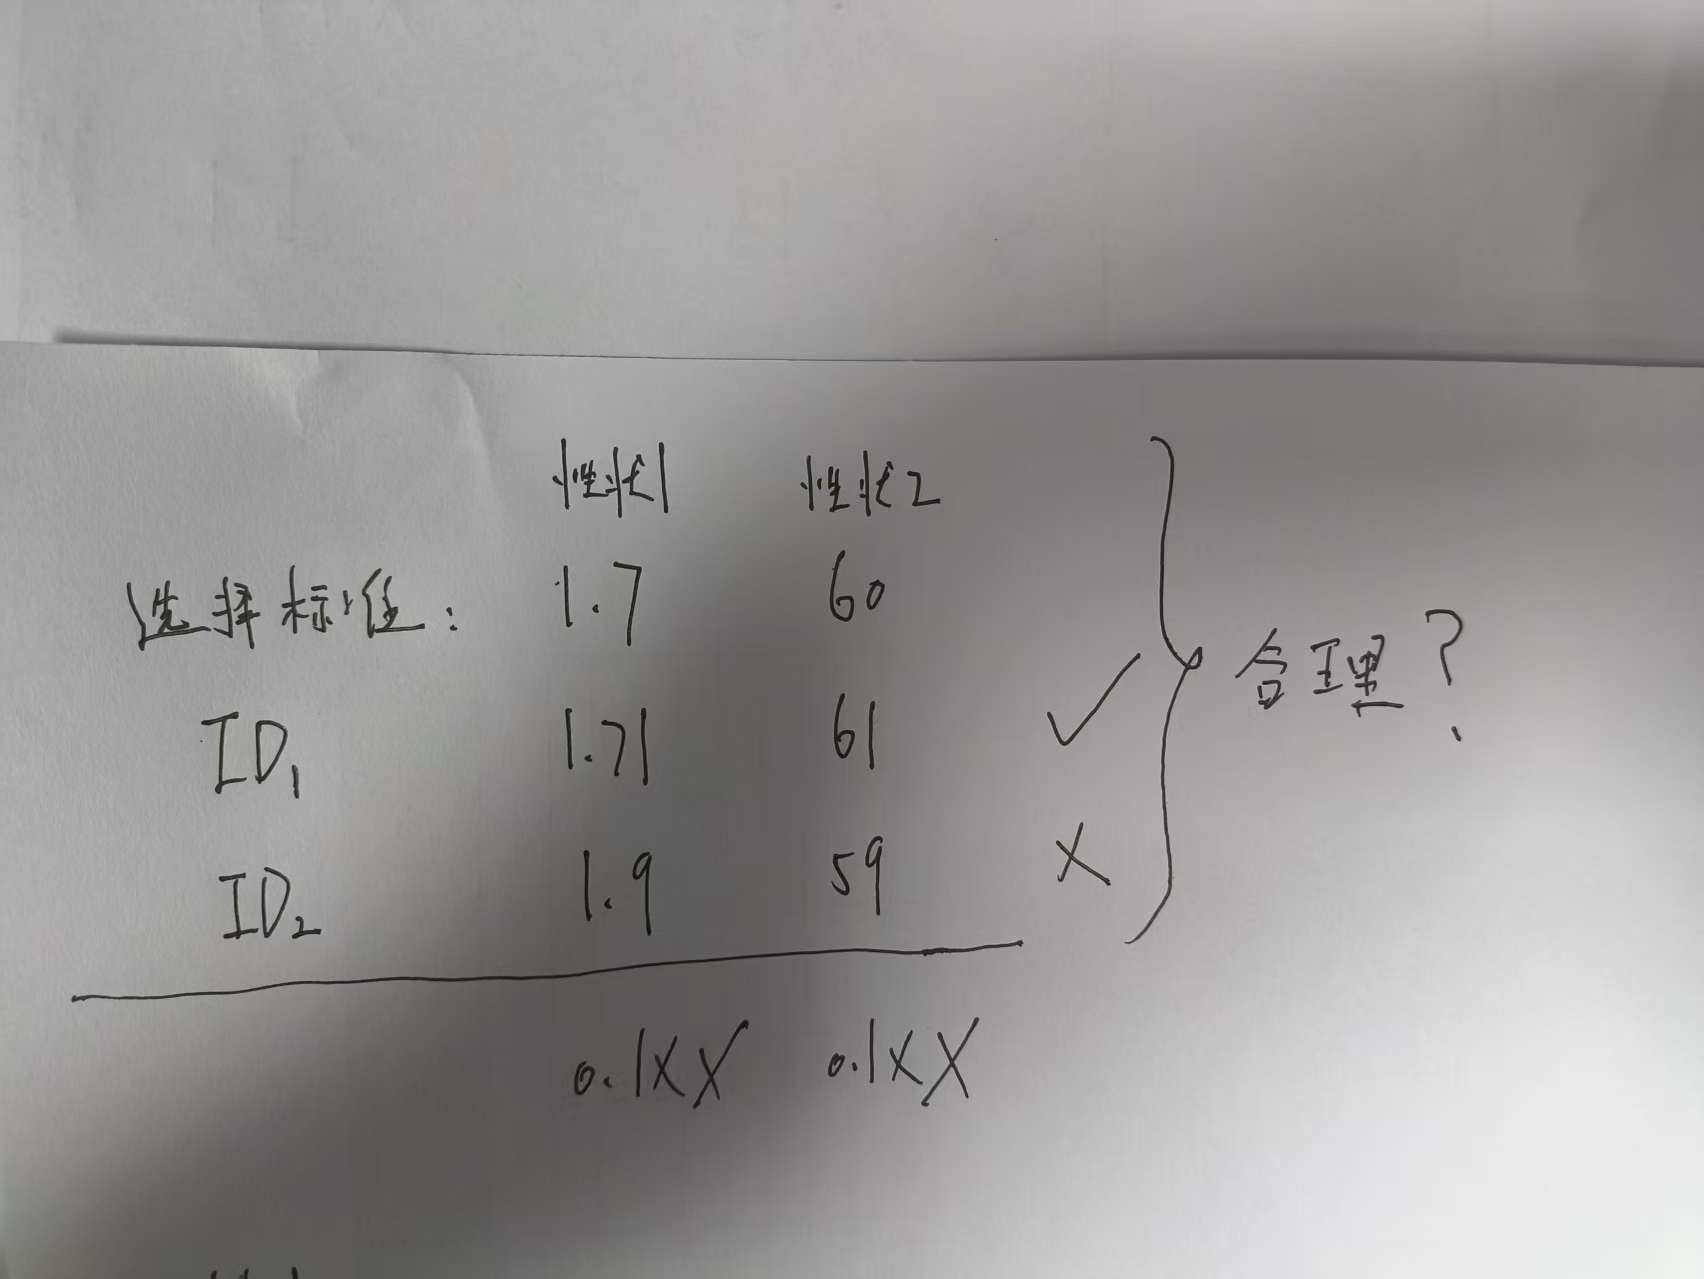 性状1 性状2
选择标准: 1.7 60
ID1 1.71 61 ✓
合理?
ID2 1.9 59 ×
0.1XX 0.1XX